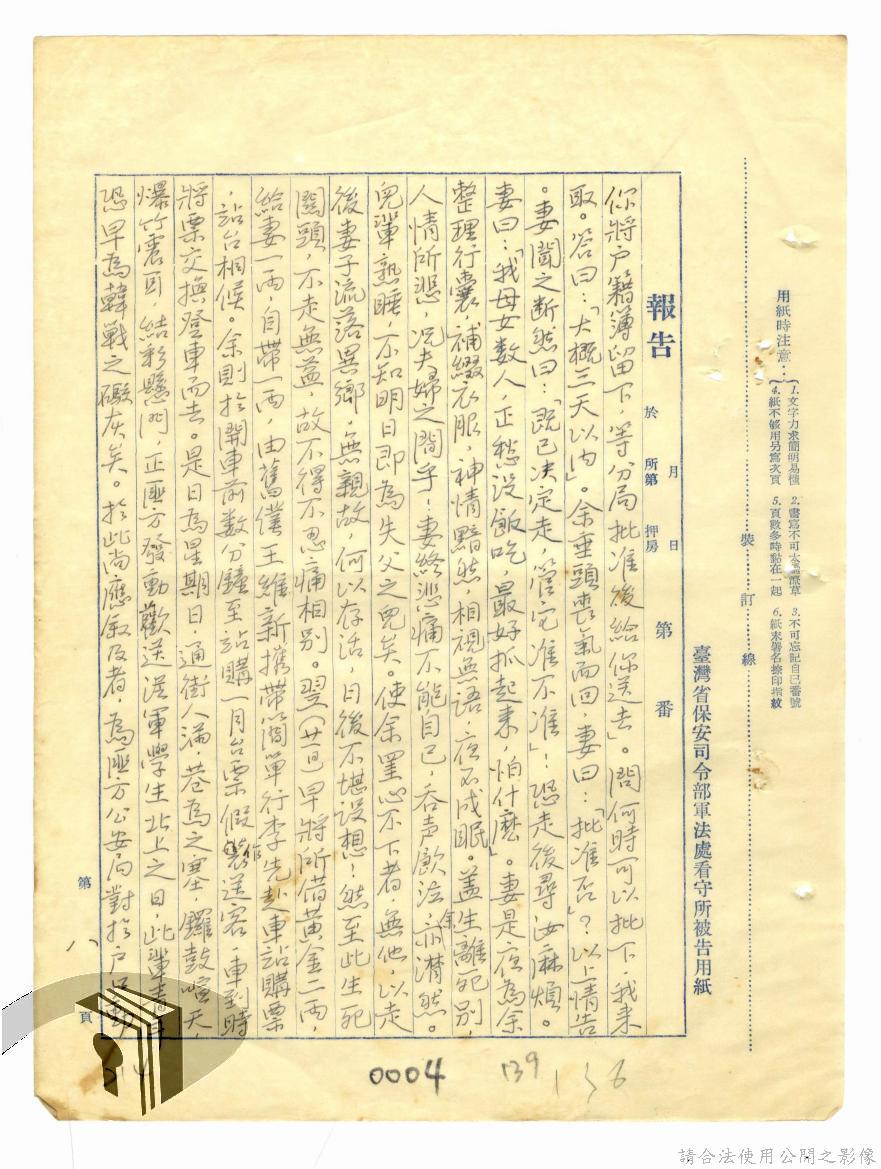 用紙時注意：
1.文字力求簡明易懂　2.書寫不可太潦草　3.不可忘記自己番號
4.紙不够用另寫次頁　5.頁數多時黏在一起　6.紙末署名捺印指紋
裝　訂　線
臺灣省保安司令部軍法處看守所被告用紙
報告　於　月　日　所第　押房　第　番
你將户籍簿留下，等分局批准後給你送去」。問何時可以批下，我來
取。答曰：「大概三天以内」。余垂頭喪氣而回，妻曰：「批准否」？以上情告
。妻聞之断然曰：「既已决定走，管它准不准」！恐走後尋汝麻煩。
妻曰：「我母女数人，正愁没飯吃，最好抓起来，怕什麽」。妻是夜為余
整理行囊，補綴衣服，神情黯然，相視無語，夜不成眠。蓋生離死别，
人情所悲，况夫婦之間乎！妻終悲痛不能自已，吞声飲泣，余亦潸然。
兒輩熟睡，不知明日即為失父之兒矣。使余罣心不下者，無他，以走
後妻子流落異鄉，無親故，何以存活，日後不堪設想！然至此生死
關頭，不走無益，故不得不忍痛相别。翌（廿一日）早將所借黄金二两，
給妻一两，自帶一两，由舊僕王維新携帶簡單行李先赴車站購票
，站台相候。余則於開車前数分鐘至站購一月台票假裝送客，車到時
將票交換登車而去。是日為星期日，通街人滿，巷為之塞，鑼鼓喧天，
爆竹震耳，結彩懸門，正匪方發動歡送从軍學生北上之日，此輩青年
恐早為韓戰之礮灰矣。於此尚應叙及者，為匪方公安局對於户口
第　八　頁
0004
139
136
請合法使用公開之影像